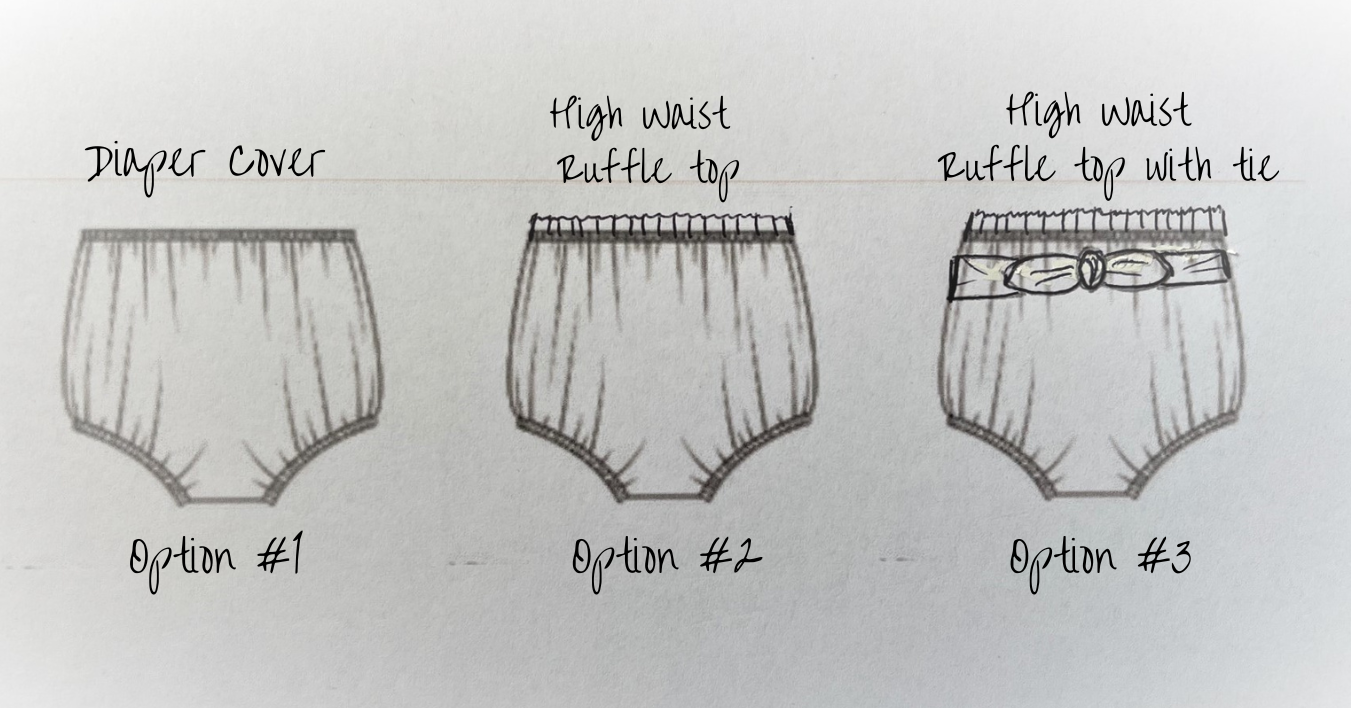 Diaper Cover
High Waist
Ruffle top
High Waist
Ruffle top with tie
Option #1
Option #2
Option #3